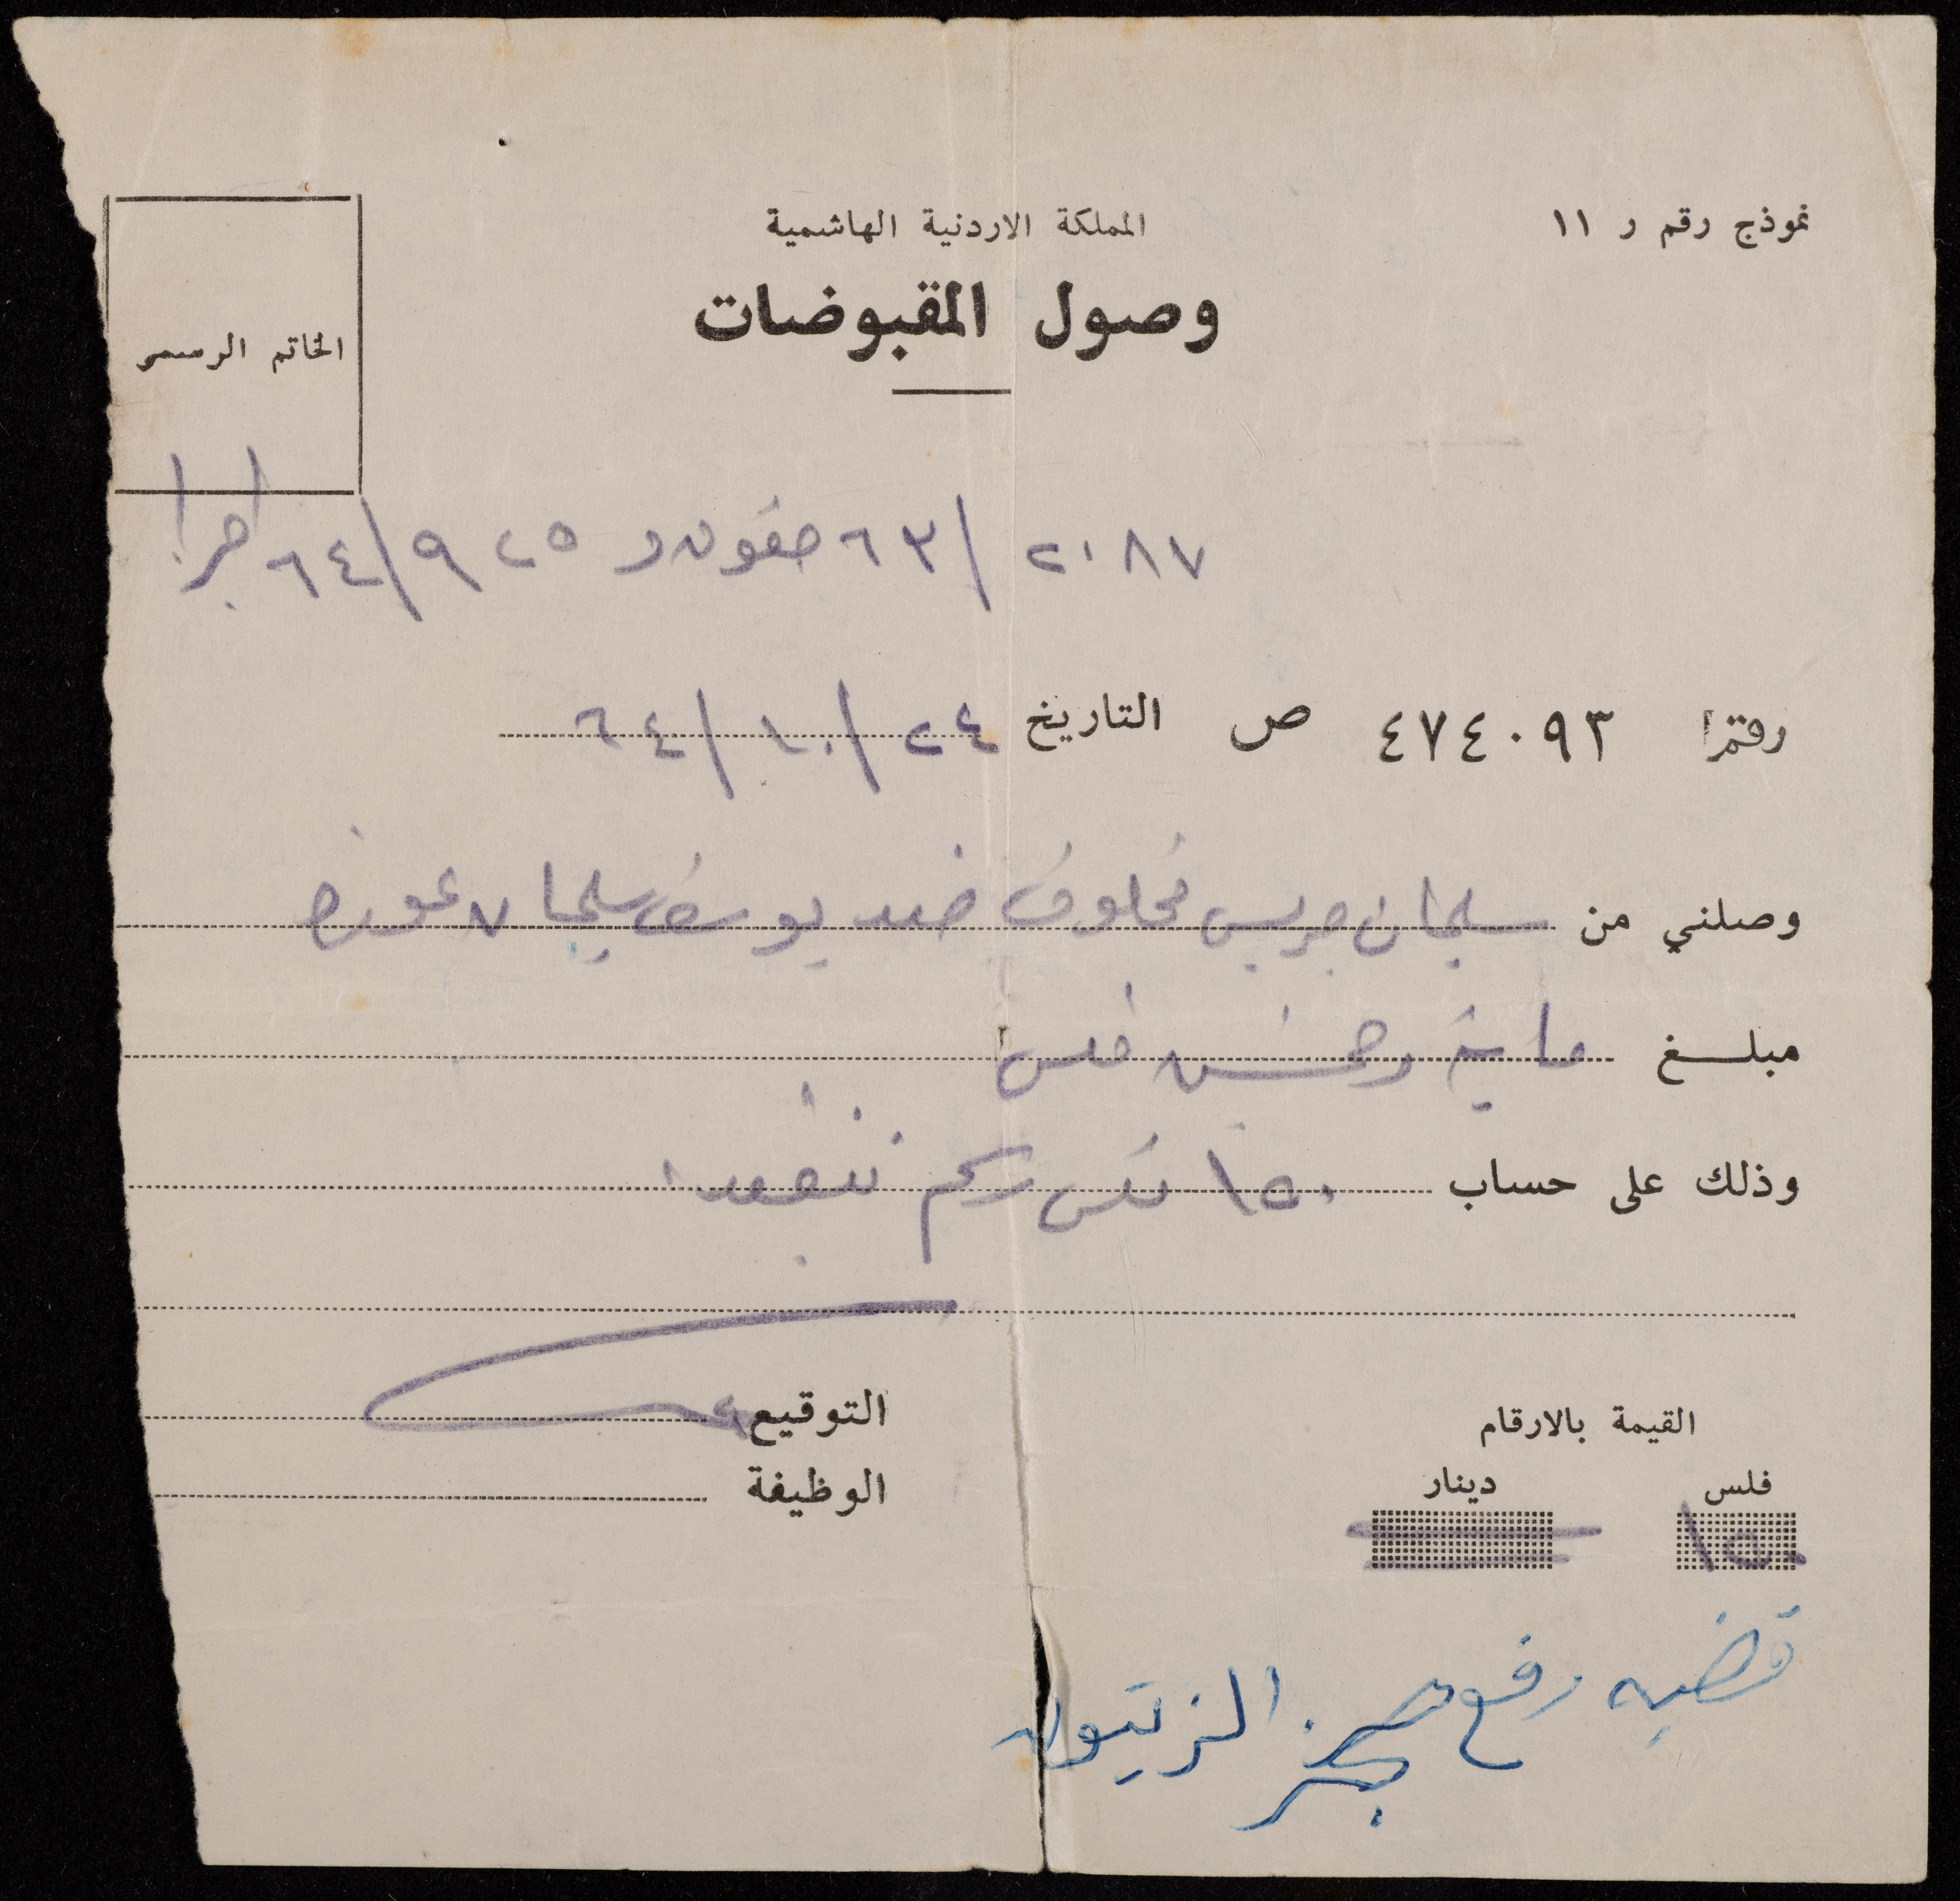 نموذج رقم ر ١١
المملكة الاردنية الهاشمية
وصول المقبوضات
الخاتم الرسمي
٢٠٨٧ / ٦٣ حقوق و ٩٢٥ / ٦٤ اجرا
رقم ٤٧٤٠٩٣ ص التاريخ ٢٤ / ١٠ / ٦٤
وصلني من سليمان جريس مخلوف ضد يوسف سليمان عوده
مبلغ ماية وخمسين فلس
وذلك على حساب ١٥٠ فلس رسم تنفيذ
القيمة بالارقام
فلس دينار
١٥٠
التوقيع
الوظيفة
قضيه رفع حجز الزيتون